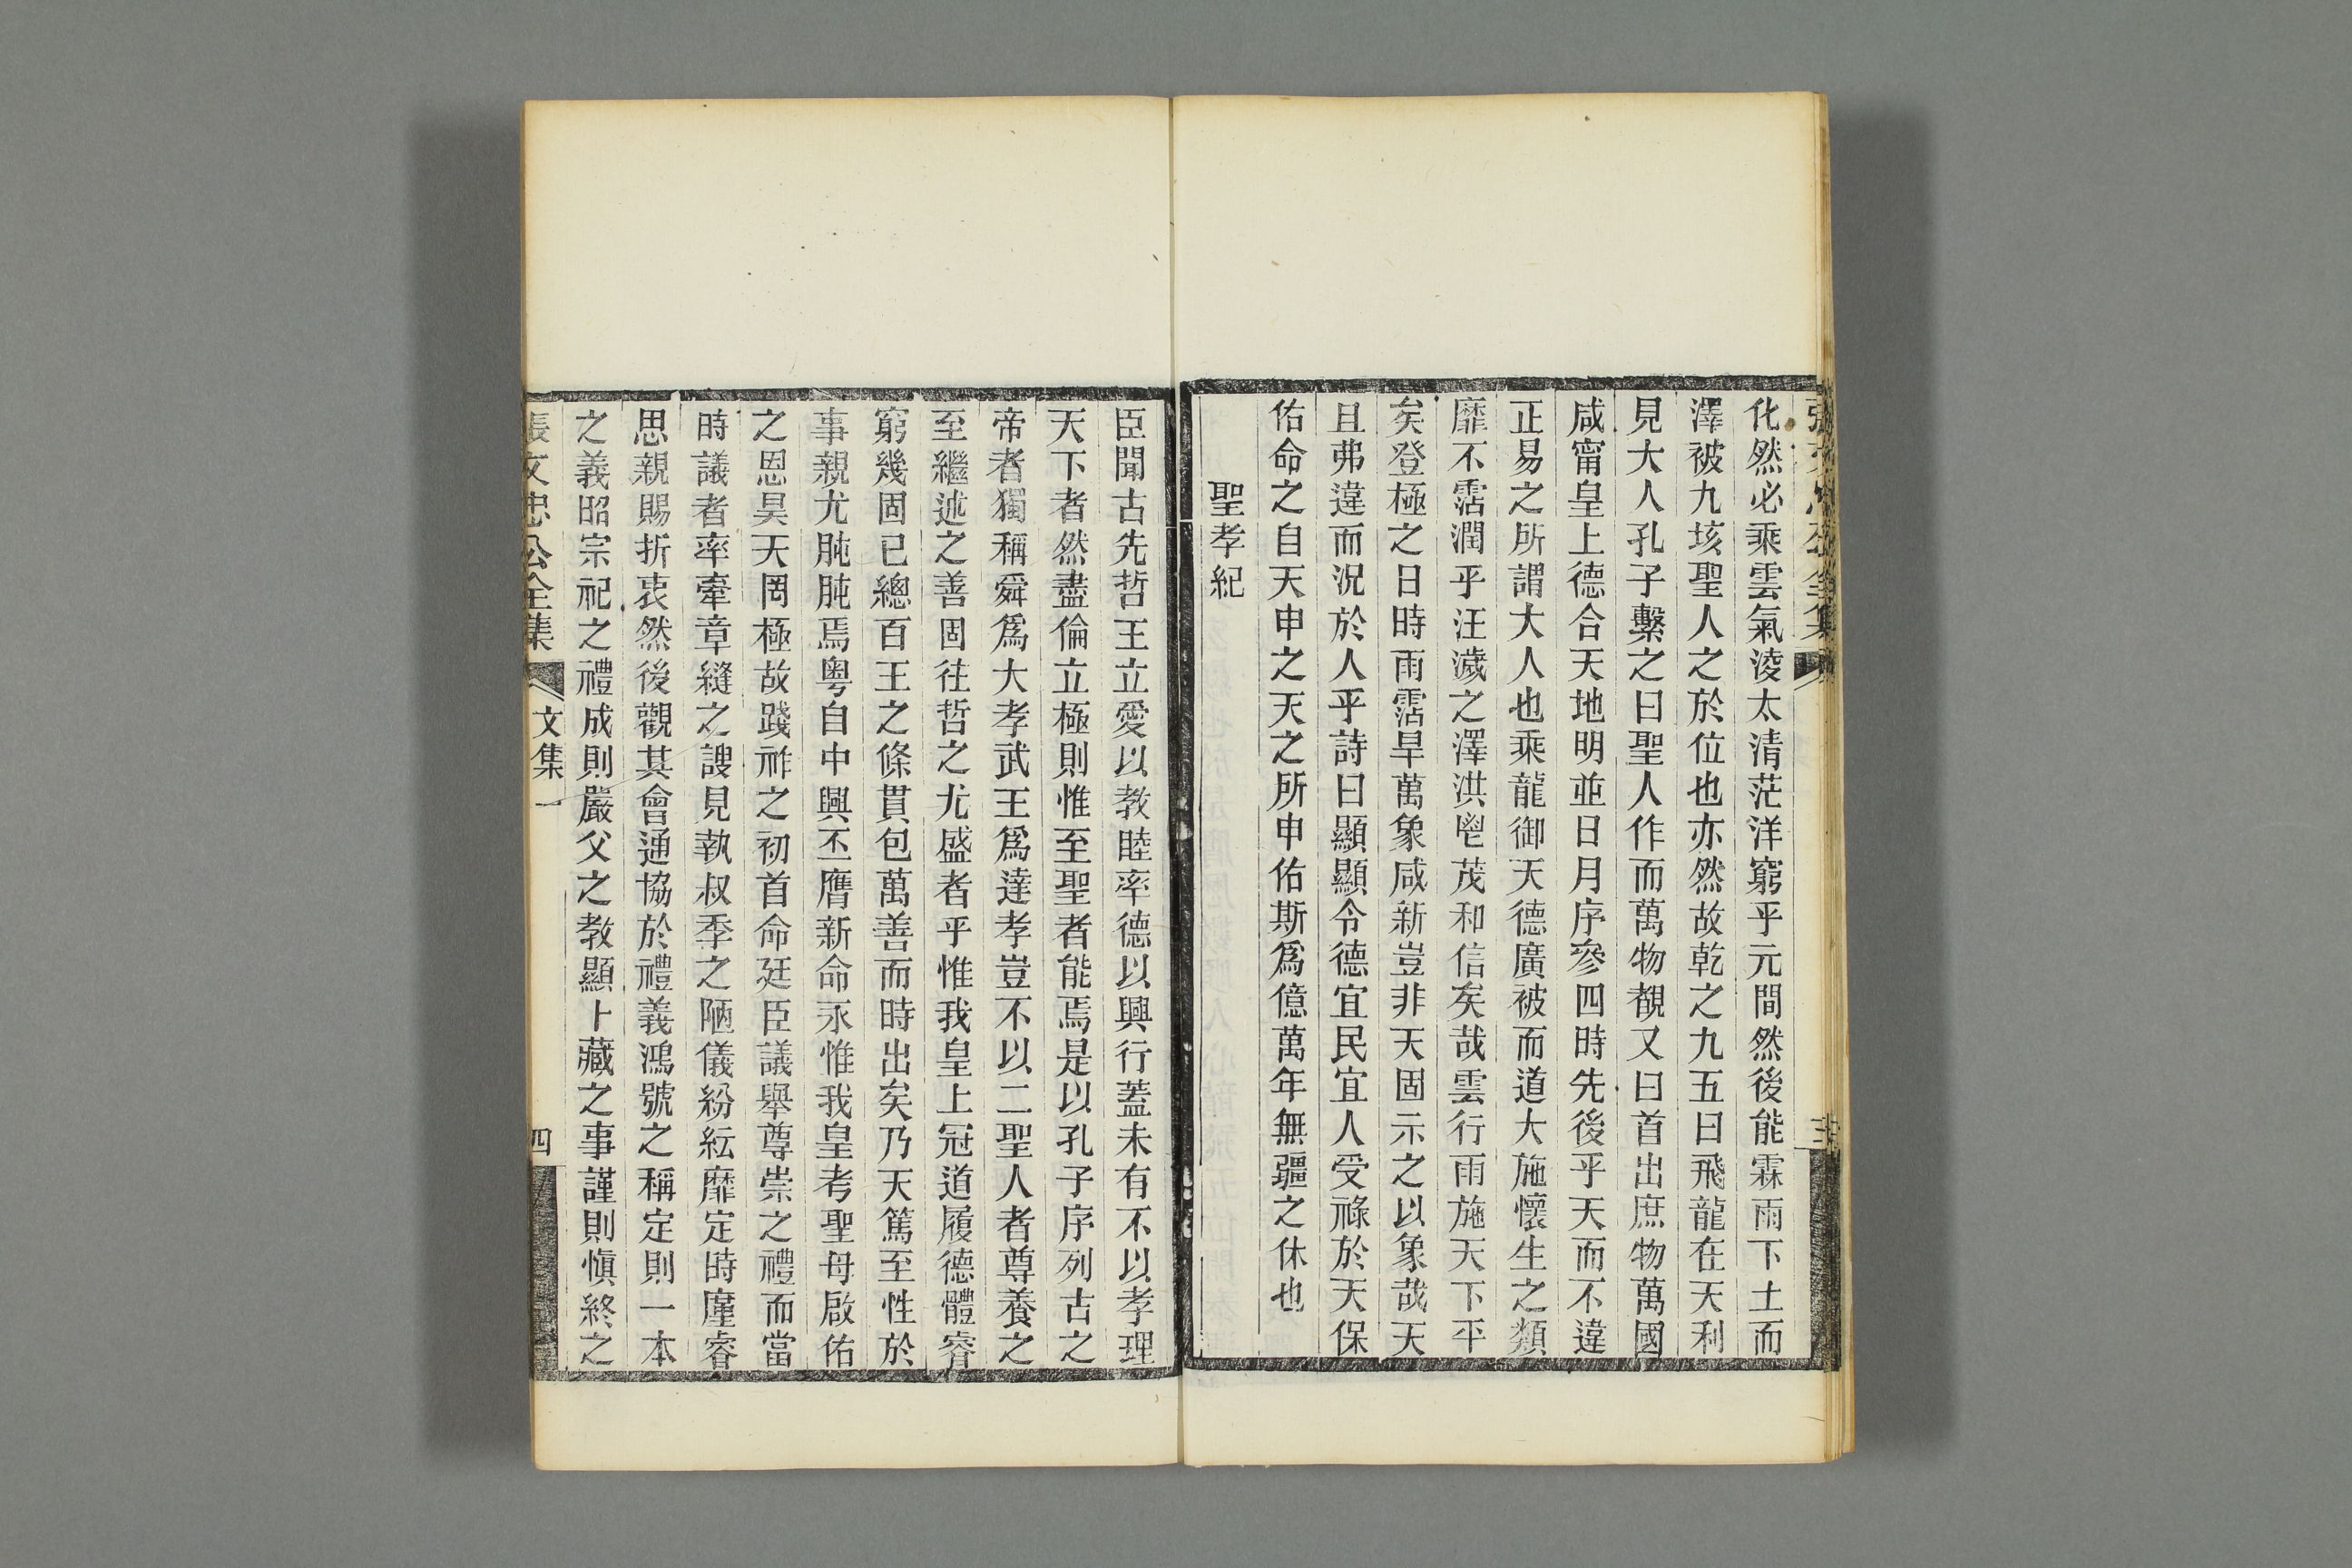 化然必乘雲氣淩太清茫洋窮乎元間然後能霖雨下土而
澤被九垓聖人之於位也亦然故乾之九五曰飛龍在天利
見大人孔子繫之曰聖人作而萬物覩又曰首出庶物萬國
咸甯皇上德合天地明並日月序參四時先後乎天而不違
正易之所謂大人也乘龍御天德廣被而道大施懷生之類
靡不霑潤乎汪濊之澤洪鬯茂和信矣哉雲行雨施天下平
矣登極之日時雨霑旱萬象咸新豈非天固示之以象哉天
且弗違而況於人乎詩曰顯顯令德宜民宜人受祿於天保
佑命之自天申之天之所申佑斯爲億萬年無疆之休也
聖孝紀
臣聞古先哲王立愛以教睦率德以興行蓋未有不以孝理
天下者然盡倫立極則惟至聖者能焉是以孔子序列古之
帝者獨稱舜爲大孝武王爲達孝豈不以二聖人者尊養之
至繼述之善固往哲之尤盛者乎惟我皇上冠道履德體睿
窮幾固已總百王之條貫包萬善而時出矣乃天篤至性於
事親尤肫肫焉粵自中興丕膺新命永惟我皇考聖母啟佑
之恩昊天罔極故踐祚之初首命廷臣議舉尊崇之禮而當
時議者率牽章縫之謏見執叔季之陋儀紛紜靡定時廑睿
思親賜折衷然後觀其會通協於禮義鴻號之稱定則一本
之義昭宗祀之禮成則嚴父之教顯卜藏之事謹則慎終之
張文忠公全集
文集一
四